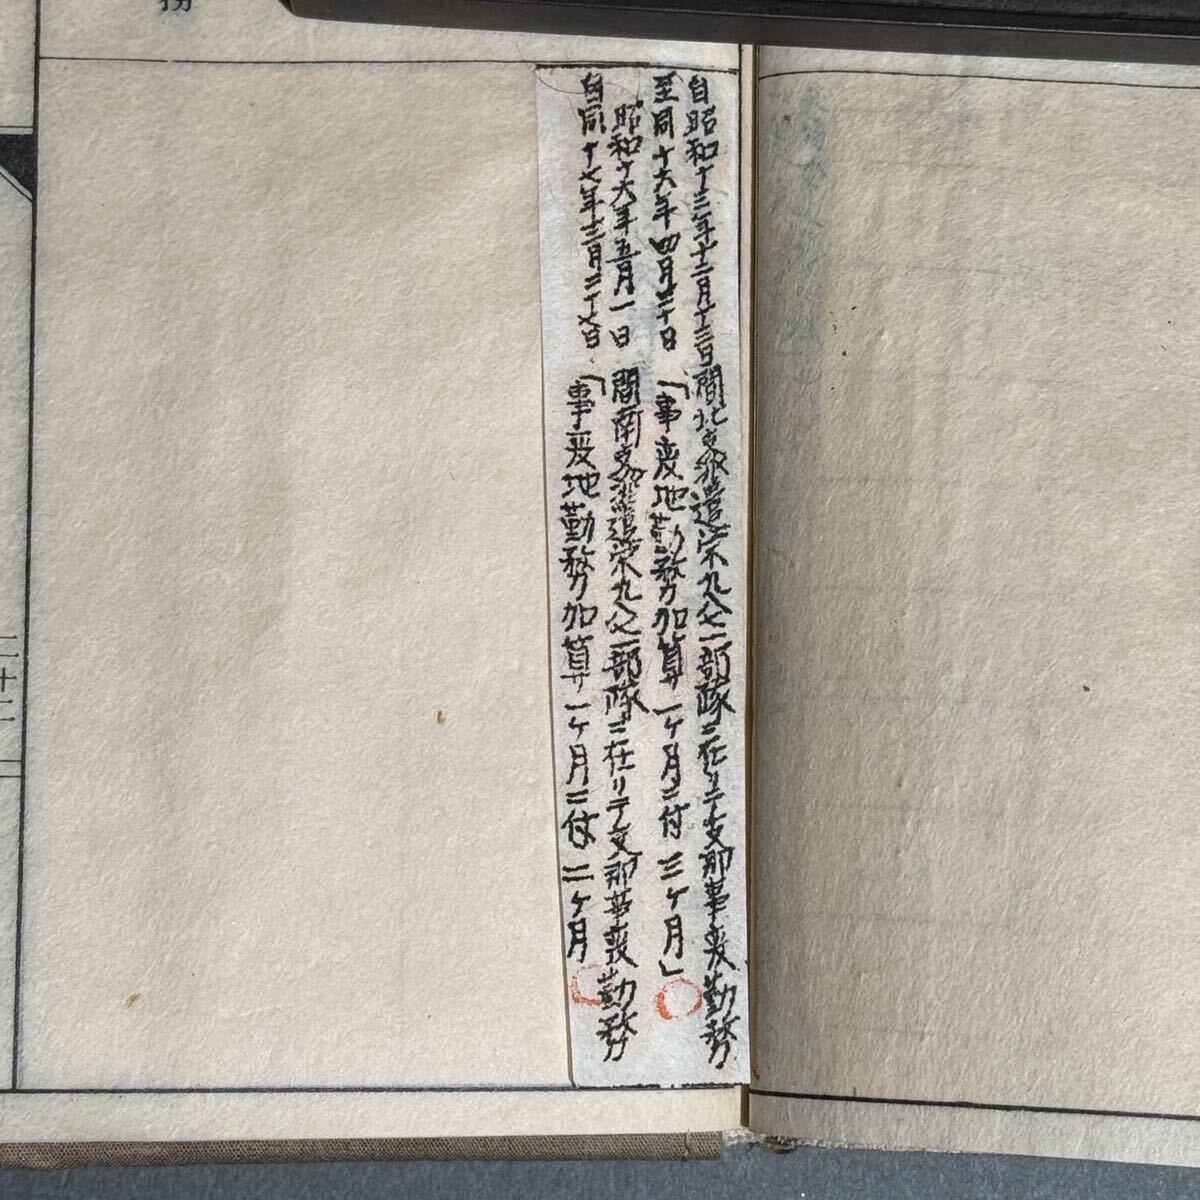 自昭和十三年十二月十三日
至同十六年四月三十日
間北支派遣栄九八七一部隊ニ在リテ支那事変勤務
「事変地勤務加算一ヶ月ニ付三ヶ月」
昭和十六年五月一日
自同十七年三月二十七日
間南支派遣栄九八七一部隊ニ在リテ支那事変勤務
「事変地勤務加算一ヶ月ニ付二ヶ月
二十二